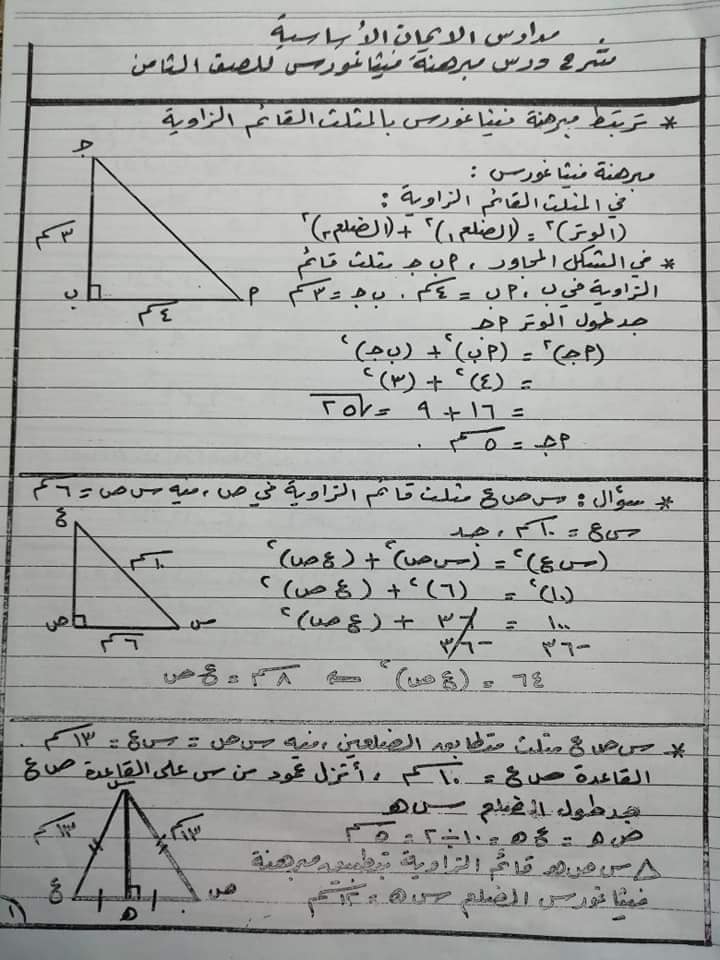 مدارس الايمان الأساسية
شرح درس مبرهنة فيثاغورس للصف الثامن
* ترتبط مبرهنة فيثاغورس بالمثلث القائم الزاوية
مبرهنة فيثاغورس :
في المثلث القائم الزاوية :
(الوتر)² = (الضلع١)² + (الضلع٢)²
* في الشكل المجاور ، م ب جـ مثلث قائم
الزاوية في ب ، م ب = ٤سم ، ب جـ = ٣سم
جد طول الوتر م جـ
(م جـ)² = (م ب)² + (ب جـ)²
= (٤)² + (٣)²
= ١٦ + ٩ = √٢٥
م جـ = ٥سم .
جـ
٣سم
ب
م
٤سم
* سؤال : س ص ع مثلث قائم الزاوية في ص ، فيه س ص = ٦سم
س ع = ١٠سم ، جد
(س ع)² = (س ص)² + (ع ص)²
(١٠)² = (٦)² + (ع ص)²
١٠٠ = ٣٦ + (ع ص)²
-٣٦ -٣٦
٦٤ = (ع ص)² ← ٨سم = ع ص
ع
١٠سم
ص
س
٦سم
* س ص ع مثلث متطابق الضلعين ، فيه س ص = س ع = ١٣سم .
القاعدة ص ع = ١٠سم ، أنزل عمود من س على القاعدة ص ع
جد طول الضلع س هـ
ص هـ = ع هـ = ١٠ ÷ ٢ = ٥سم
△ س ص هـ قائم الزاوية بتطبيق مبرهنة
فيثاغورس الضلع س هـ = ١٢سم
س
١٣سم
١٣سم
ع
هـ
ص
(١